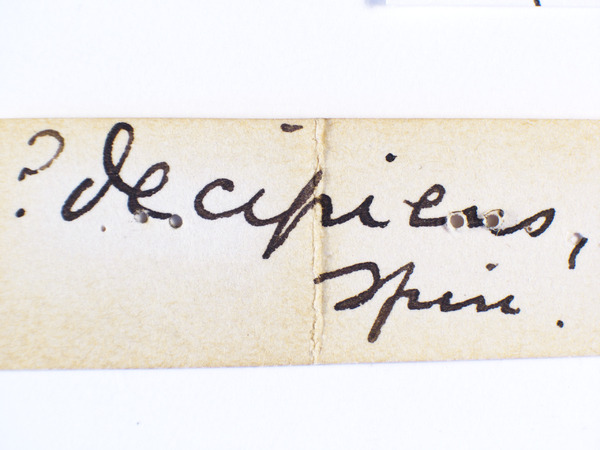 ? decipiens,
Spin.